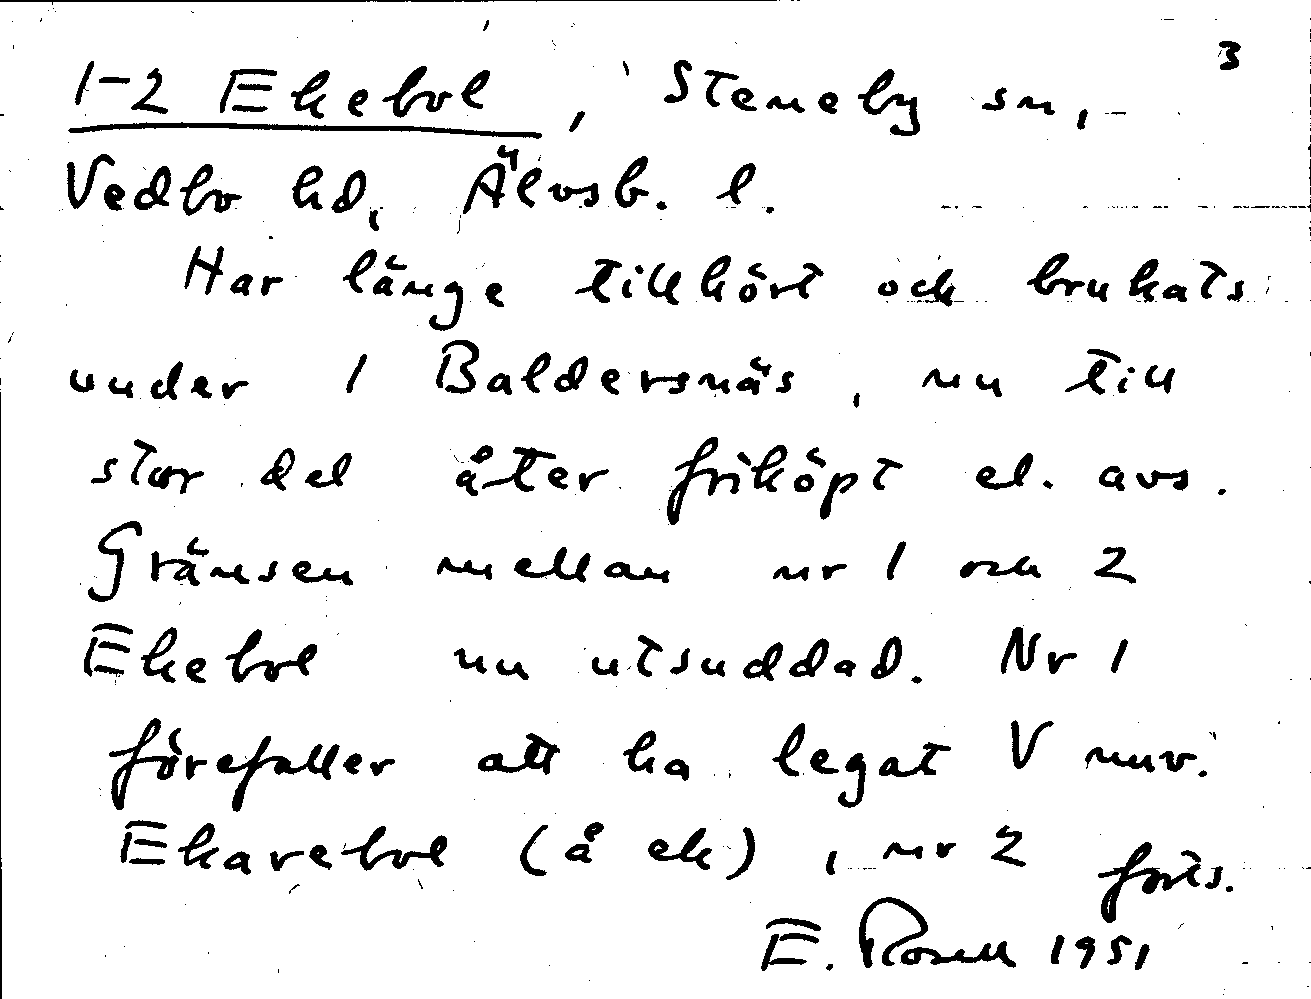 3
1-2 Ekebol, Steneby sn,
Vedbo hd, Älvsb. l.
Har länge tillhört och brukats
under 1 Baldersnäs, nu till
stor del åter friköpt el. avs.
Gränsen mellan nr 1 och 2
Ekebol nu utsuddad. Nr 1
förefaller att ha legat V nuv.
Ekarebol (å ek), nr 2 forts.
E. Rosell 1951